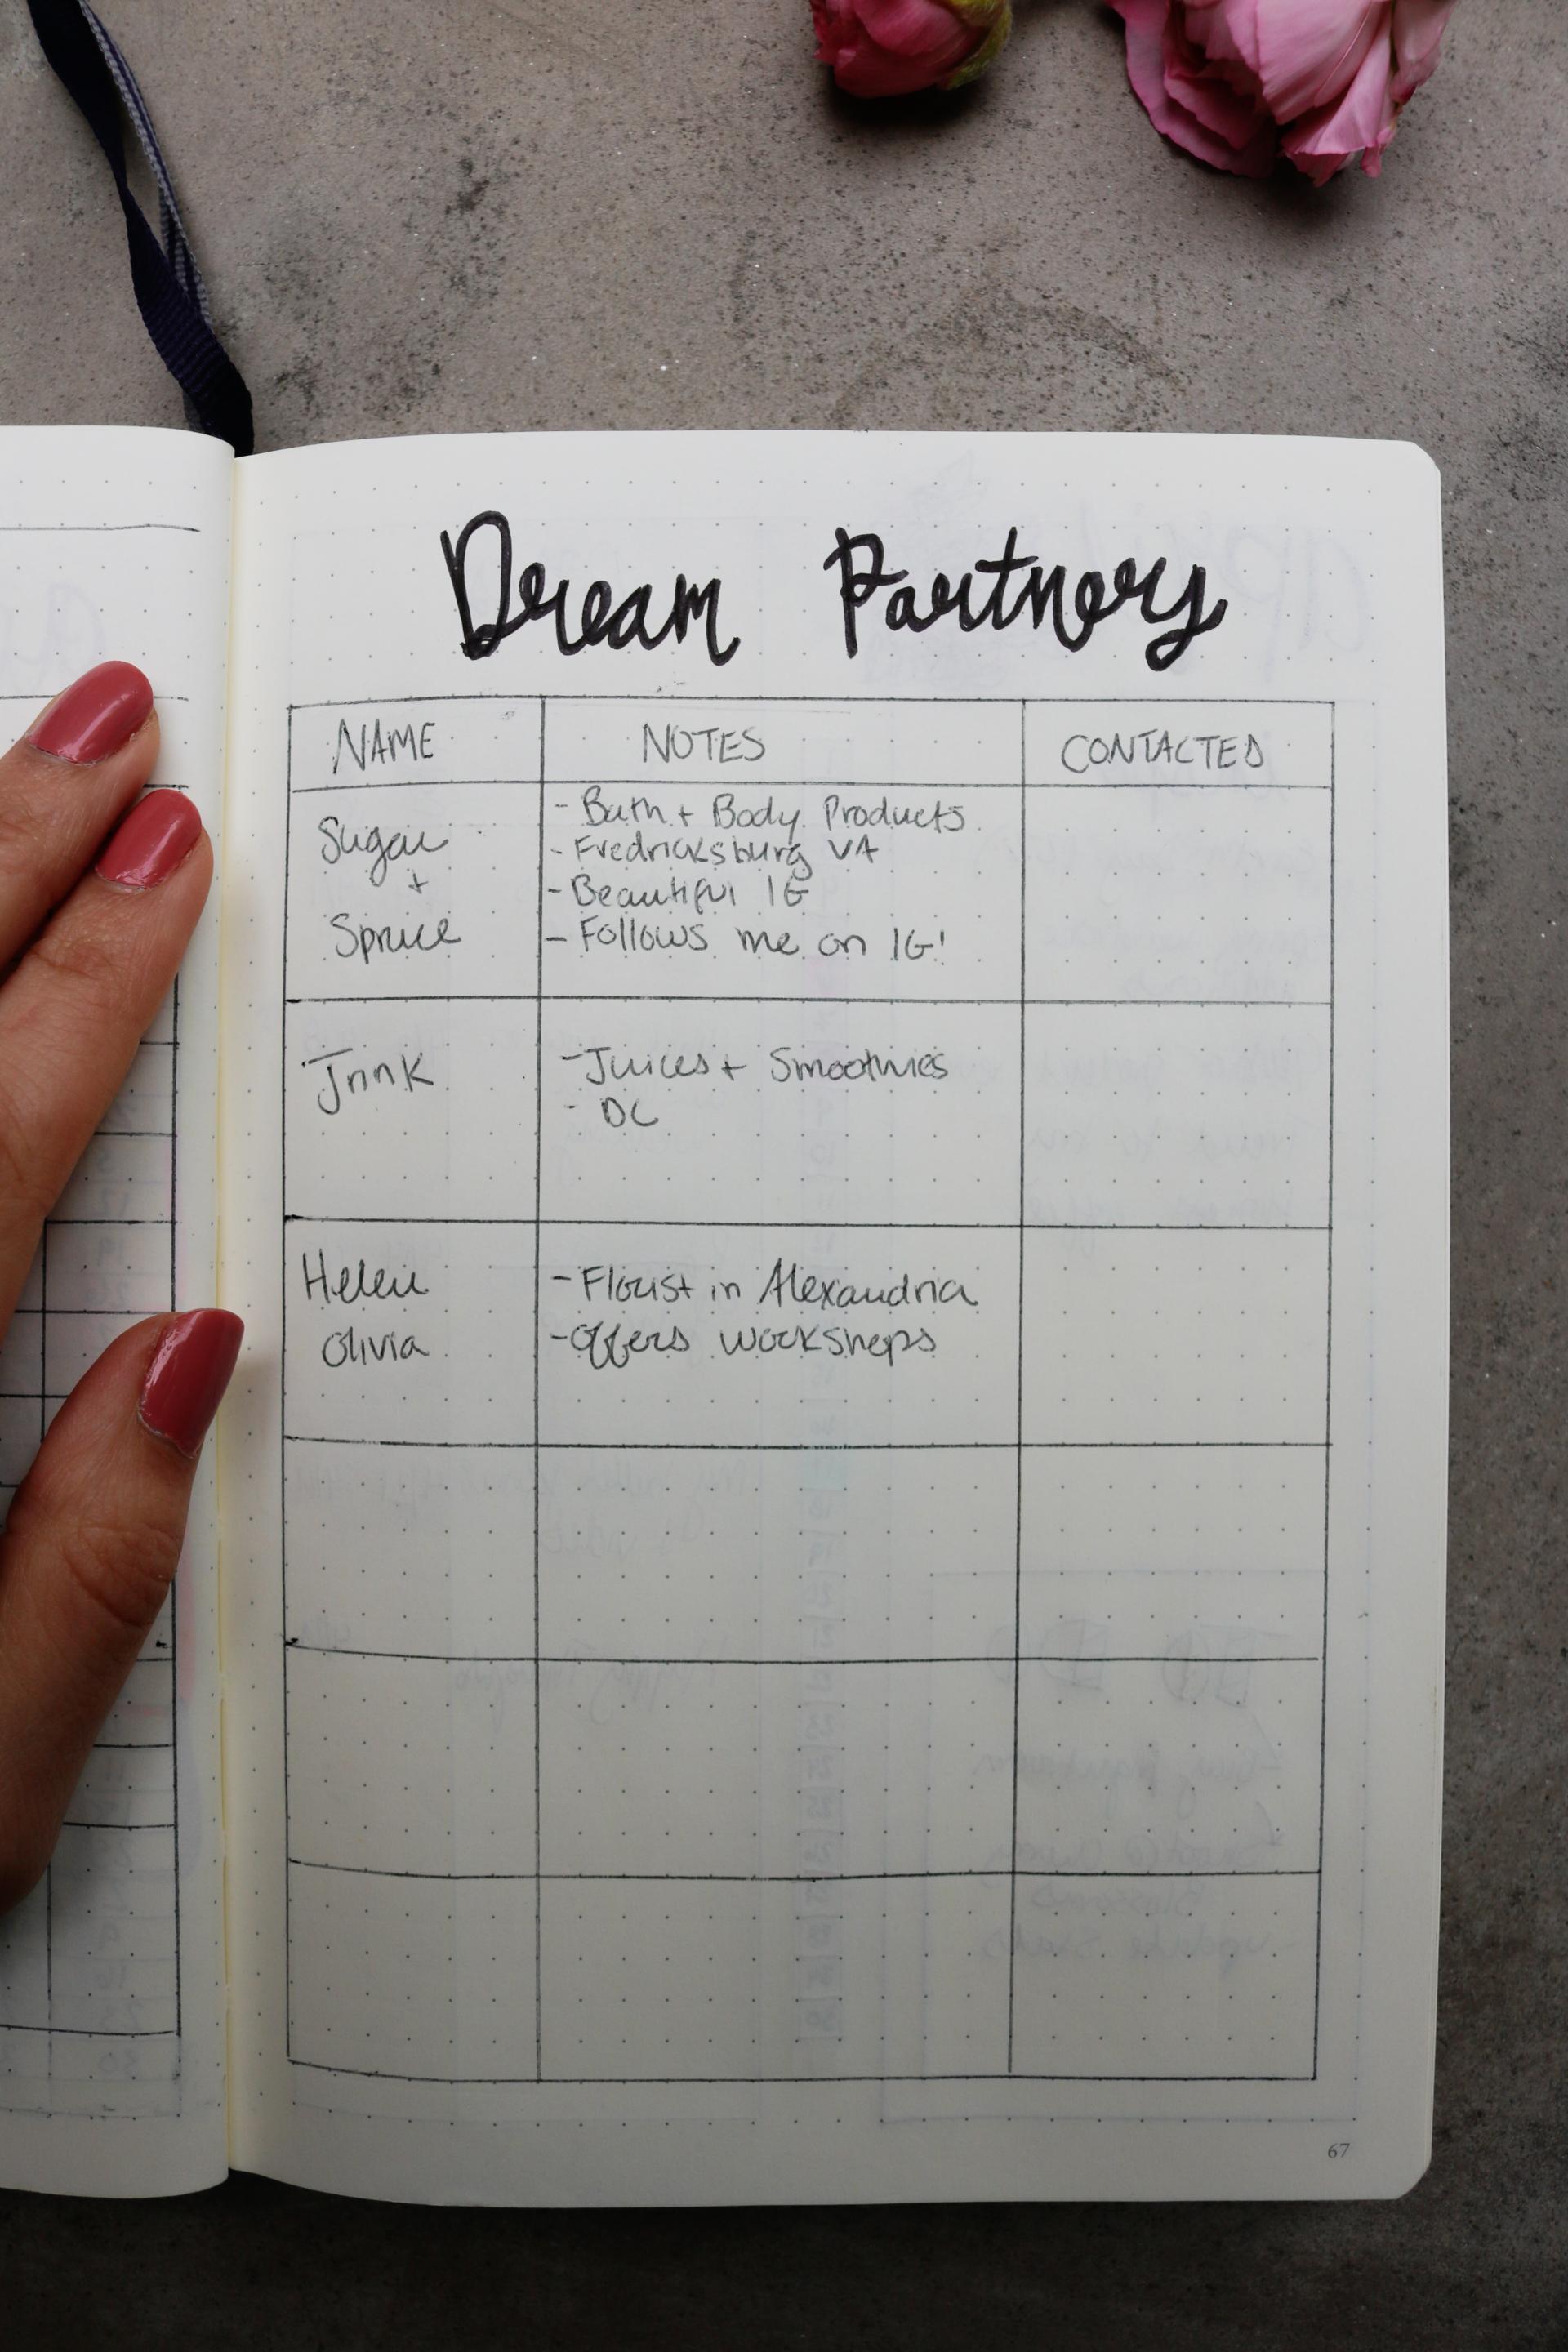 Dream Partners
NAME NOTES CONTACTED
Sugar
+
Spruce
- Bath + Body Products
- Fredricksburg VA
- Beautiful IG
- Follows me on IG!
Jrink
- Juices + Smoothies
- DC
Helen
Olivia
- Florist in Alexandria
- Offers workshops
67